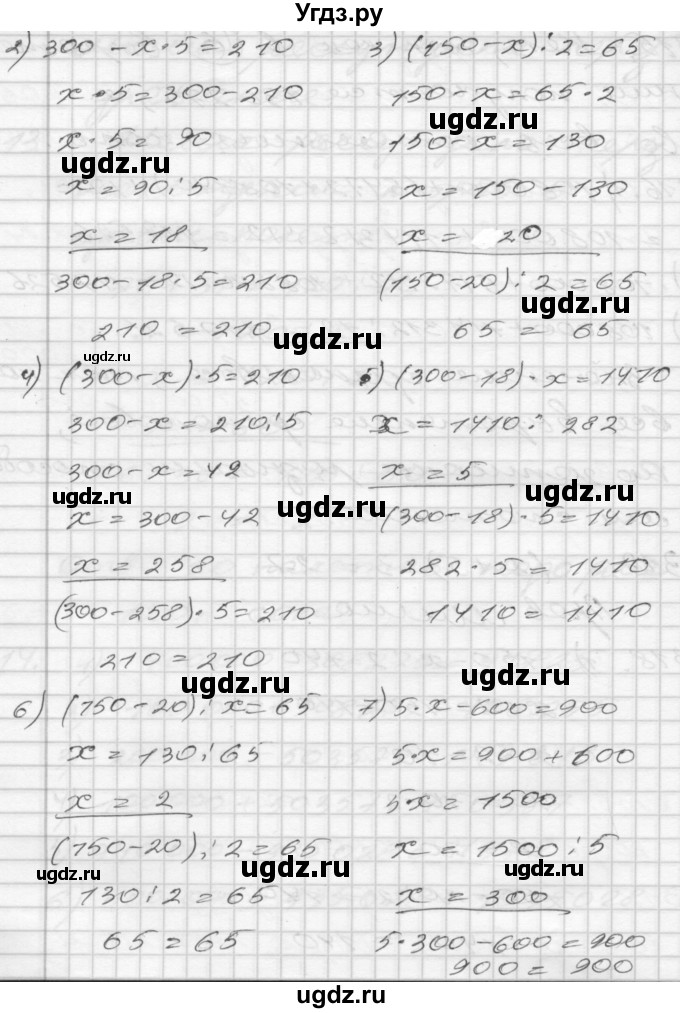 Угдз.ру
2) 300 - x · 5 = 210
x · 5 = 300 - 210
x · 5 = 90
x = 90 : 5
x = 18
300 - 18 · 5 = 210
210 = 210
3) (150 - x) : 2 = 65
150 - x = 65 · 2
150 - x = 130
x = 150 - 130
x = 20
(150 - 20) : 2 = 65
65 = 65
4) (300 - x) · 5 = 210
300 - x = 210 : 5
300 - x = 42
x = 300 - 42
x = 258
(300 - 258) · 5 = 210
210 = 210
5) (300 - 18) · x = 1410
x = 1410 : 282
x = 5
(300 - 18) · 5 = 1410
282 · 5 = 1410
1410 = 1410
6) (150 - 20) : x = 65
x = 130 : 65
x = 2
(150 - 20) : 2 = 65
130 : 2 = 65
65 = 65
7) 5 · x - 600 = 900
5 · x = 900 + 600
5 · x = 1500
x = 1500 : 5
x = 300
5 · 300 - 600 = 900
900 = 900
ugdz.ru
ugdz.ru
ugdz.ru
ugdz.ru
ugdz.ru
ugdz.ru
ugdz.ru
ugdz.ru
ugdz.ru
ugdz.ru
ugdz.ru
ugdz.ru
ugdz.ru